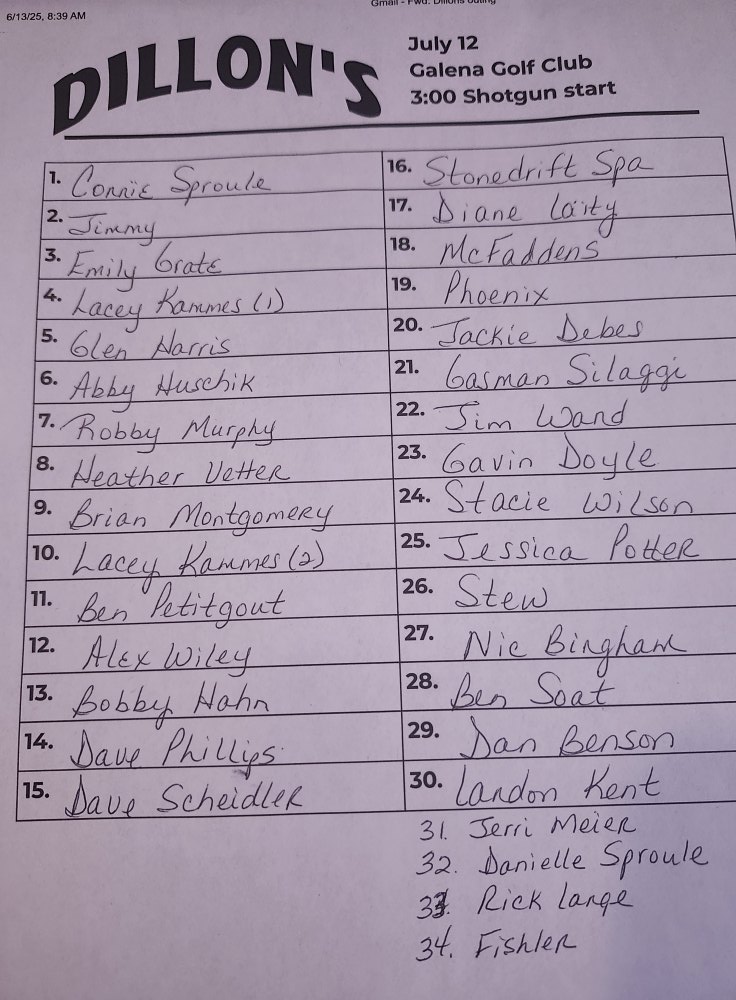 Gmail - Fwd: Dillons outing
6/13/25, 8:39 AM
DILLON'S
July 12
Galena Golf Club
3:00 Shotgun start
1. Connie Sproule
2. Jimmy
3. Emily Grate
4. Lacey Kammes (1)
5. Glen Harris
6. Abby Huschik
7. Robby Murphy
8. Heather Vetter
9. Brian Montgomery
10. Lacey Kammes (2)
11. Ben Petitgout
12. Alex Wiley
13. Bobby Hahn
14. Dave Phillips
15. Dave Scheidler
16. Stonedrift Spa
17. Diane Laity
18. McFaddens
19. Phoenix
20. Jackie Debes
21. Gasman Silaggi
22. Jim Wand
23. Gavin Doyle
24. Stacie Wilson
25. Jessica Potter
26. Stew
27. Nic Bingham
28. Ben Soat
29. Dan Benson
30. Landon Kent
31. Jerri Meier
32. Danielle Sproule
33. Rick Lange
34. Fishler